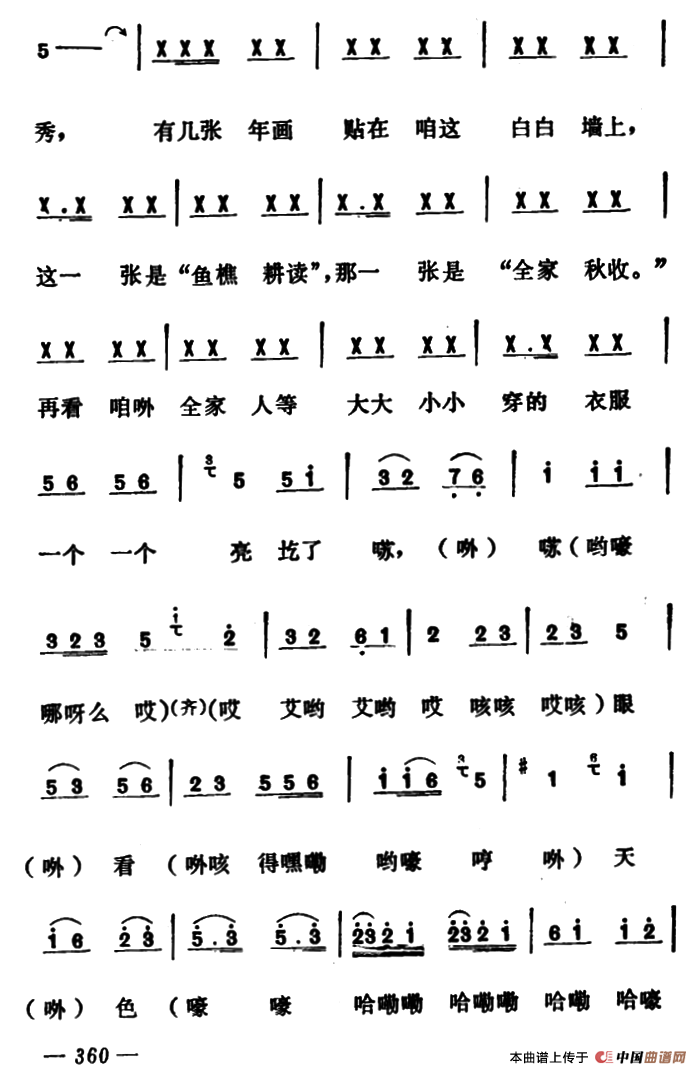 5 — | X X X X X | X X X X | X X X X |
秀， 有几张 年画 贴在 咱这 白白 墙上，
X . X X X | X X X X | X . X X X | X X X X |
这一 张是“鱼樵 耕读”，那一 张是 “全家 秋收。”
X X X X | X X X X | X X X X | X . X X X |
再看 咱哟 全家 人等 大大 小小 穿的 衣服
5 6 5 6 | 3 5 5 1 | 3 2 7 6 | 1 1 1 |
一个 一个 亮 圪了 嗦，（哟）嗦（哟嚎
3 2 3 5 1 2 | 3 2 6 1 | 2 2 3 | 2 3 5 |
哪呀么 哎）（齐）（哎 艾哟 艾哟 哎 咳咳 哎咳）眼
5 3 5 6 | 2 3 5 5 6 | 1 1 6 3 5 | #1 6 1 |
看（ 咳 得嘿嘞 哟嚎 哼 ）天
1 6 2 3 | 5 . 3 5 . 3 | 2 3 2 1 2 3 2 1 | 6 1 1 2 |
色（嚎 嚎 哈嘞嘞 哈嘞嘞 哈嘞 哈嚎
— 360 —
本曲谱上传于 中国曲谱网